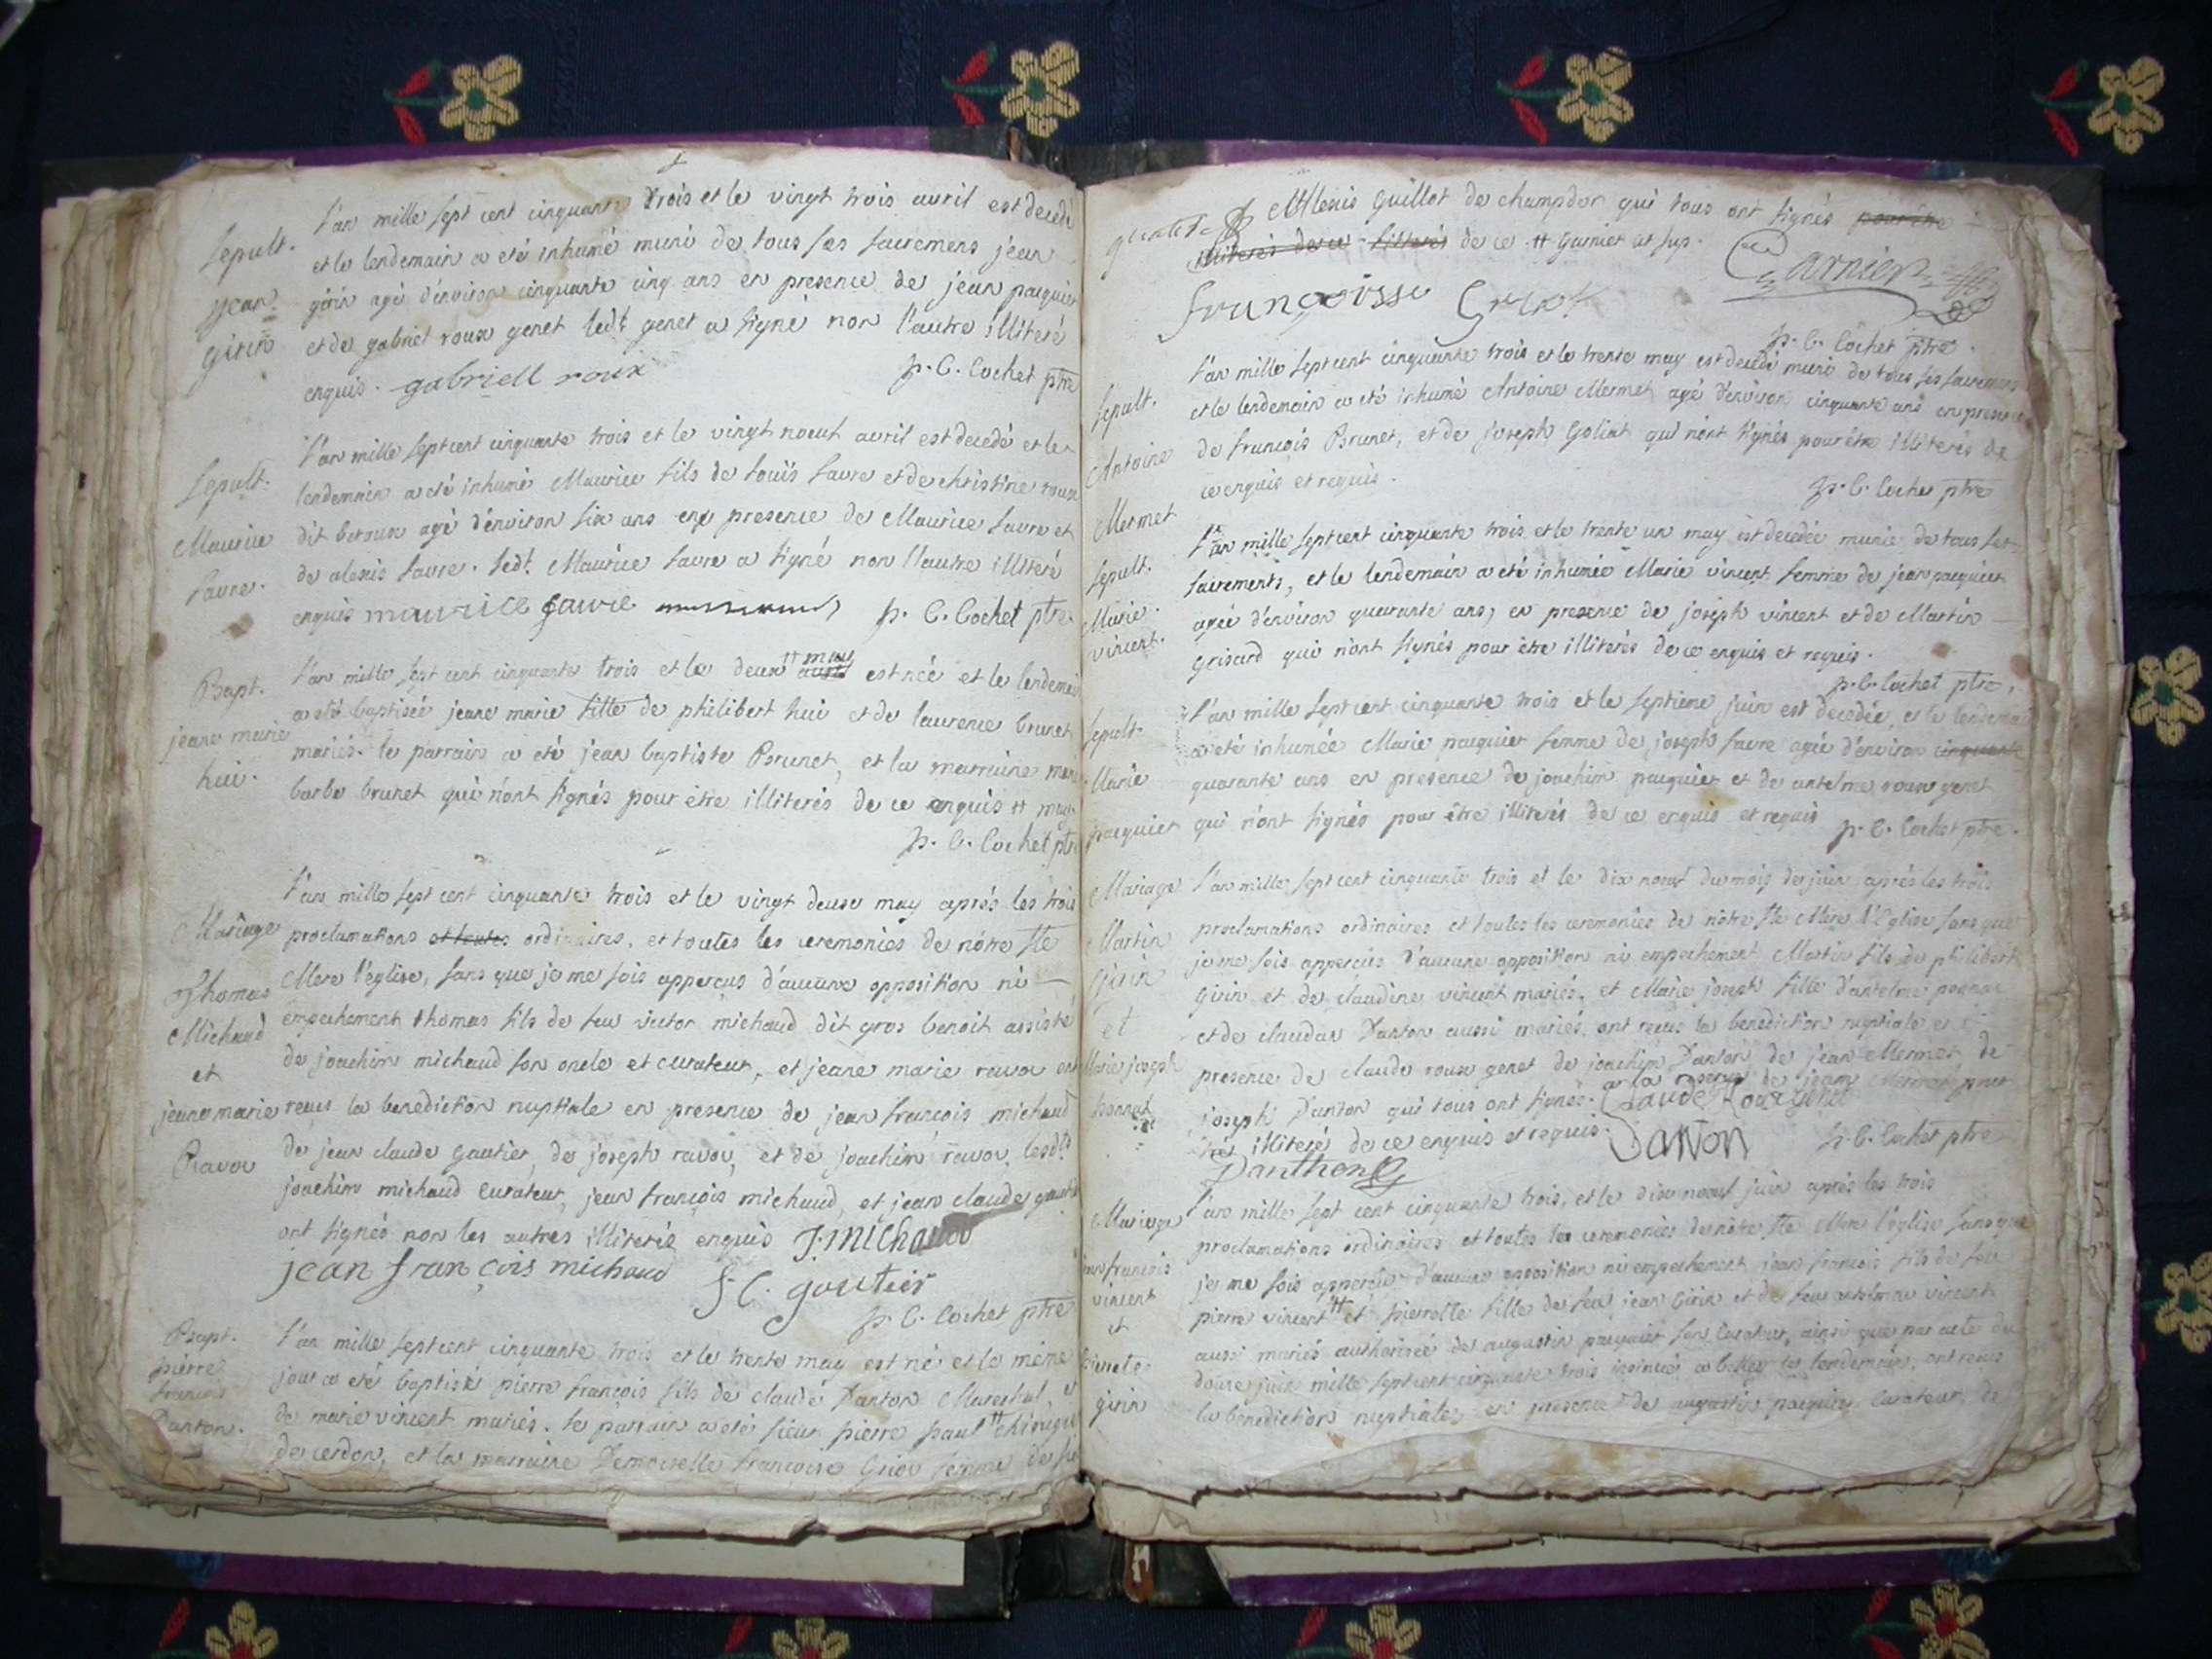 Sepult.
jean
girin
l'an mille sept cent cinquante trois et le vingt trois avril est decedé
et le lendemain a eté inhumé muni de tous ses sacremens jean
girin agé d'environ cinquante cinq ans en presence de jean paiquier
et de gabriel roux genet ledt. genet a signé non l'autre illiteré
enquis. gabriell roux
p. C. Cochet ptre
Sepult.
Maurice
Savre.
l'an mille sept cent cinquante trois et le vingt noeuf avril est decedé et le
lendemain a eté inhumé Maurice fils de Louis Savre et de christine roux
dit betoux agé d'environ six ans en presence de Maurice Savre et
de alexis Savre. ledt. Maurice Savre a signé non l'autre illiteré
enquis maurice savre p. C. Cochet ptre
Bapt.
jeane marie
hui.
l'an mille sept cent cinquante trois et le deux may est née et le lendemain
a eté baptisée jeane marie fille de philibert hui et de laurence brunet
mariés. le parrain a eté jean baptiste Brunet, et la marraine marie
barbe brunet qui n'ont signés pour être illiterés de ce enquis # may
p. C. Cochet ptre
Mariage
Thomas
Michaud
et
jeane marie
Ravou
l'an mille sept cent cinquante trois et le vingt deux may aprés les trois
proclamations et toutes ordinaires, et toutes les ceremonies de nôtre Ste
Mere l'eglise, sans que je me sois apperçus d'aucune opposition ni
empechement thomas fils de feu victor michaud dit gros benoit assisté
de joachim michaud son oncle et curateur, et jeane marie ravou ont
reçus la benediction nuptiale en presence de jean francois michaud
de jean claude gautier, de joseph ravou, et de joachim ravou. lesdts
joachim michaud curateur, jean françois michaud, et jean claude gautier
ont signés non les autres illiterés enquis J. michaud
jean françois michaud J C. goutier
p. C. Cochet ptre
Bapt.
pierre
francois
Danton.
l'an mille sept cent cinquante trois et le trente may est né et le même
jour a eté baptisé pierre francois fils de claude Danton Marechal, et
de marie vincent mariés. le parrain a eté sieur pierre paul #
de cerdon, et la marraine Demoiselle francoise Griot femme de
Alexis Guillot de champdor qui tous ont signés pour être
illiterés de ce illiterés de ce. # garnier at sup.
françoisse Griot Garnier
p. C. Cochet ptre.
Sepult.
Antoine
Mermet
l'an mille sept cent cinquante trois et le trente may est decedé muni de tous ses sacremens
et le lendemain a eté inhumé Antoine Mermet agé d'environ cinquante ans en presence
de francois Brunet, et de joseph Goliat qui n'ont signés pour être illiterés de
ce enquis et requis.
p. C. Cochet ptre
Sepult.
Marie
vincent.
l'an mille sept cent cinquante trois et le trente un may est decedée munie de tous ses
sacrements, et le lendemain a eté inhumée Marie vincent femme de jean paiquier
agée d'environ quarante ans, en presence de joseph vincent et de Martin
Grisard qui n'ont signés pour être illiterés de ce enquis et requis.
p. C. Cochet ptre.
Sepult.
Marie
paiquier
l'an mille sept cent cinquante trois et le septieme juin est decedée, et le lendemain
a eté inhumée Marie paiquier femme de joseph Savre agée d'environ cinquante
quarante ans en presence de joachim paiquier et de antelme roux genet
qui n'ont signés pour être illiterés de ce enquis et requis p. C. Cochet ptre.
Mariage
Martin
Girin
et
Marie joseph
l'an mille sept cent cinquante trois et le dix noeuf du mois de juin aprés les trois
proclamations ordinaires et toutes les ceremonies de nôtre Ste Mere l'Eglise sans que
je me sois apperçus d'aucune opposition ni empechement Martin fils de philibert
Girin et de claudine vincent mariés, et Marie joseph fille d'antelme
et de claudar Danton aussi mariés ont reçus la benediction nuptiale en
presence de claude roux genet de joachim Danton de jean Mermet de
joseph Danton qui tous ont signés. a la reserve de jean Mermet pour
être illiteré de ce enquis et requis. Claude Roux genet
Danton p. C. Cochet ptre
Danthon
Mariage
jean francois
vincent
et
pierrete
girin
l'an mille sept cent cinquante trois, et le dix noeuf juin aprés les trois
proclamations ordinaires et toutes les ceremonies de nôtre Ste Mere l'eglise sans que
je me sois apperçu d'aucune opposition ni empechement jean francois fils de feu
pierre vincent # et pierrette fille de feu jean Girin et de feue antelmine vincent
aussi mariés authorisée de augustin paiquier son curateur, ainsi que par acte du
douze juin mille sept cent cinquante trois insinué a belley le lendemain, ont reçus
la benediction nuptiale, en presence de augustin paiquier curateur, de